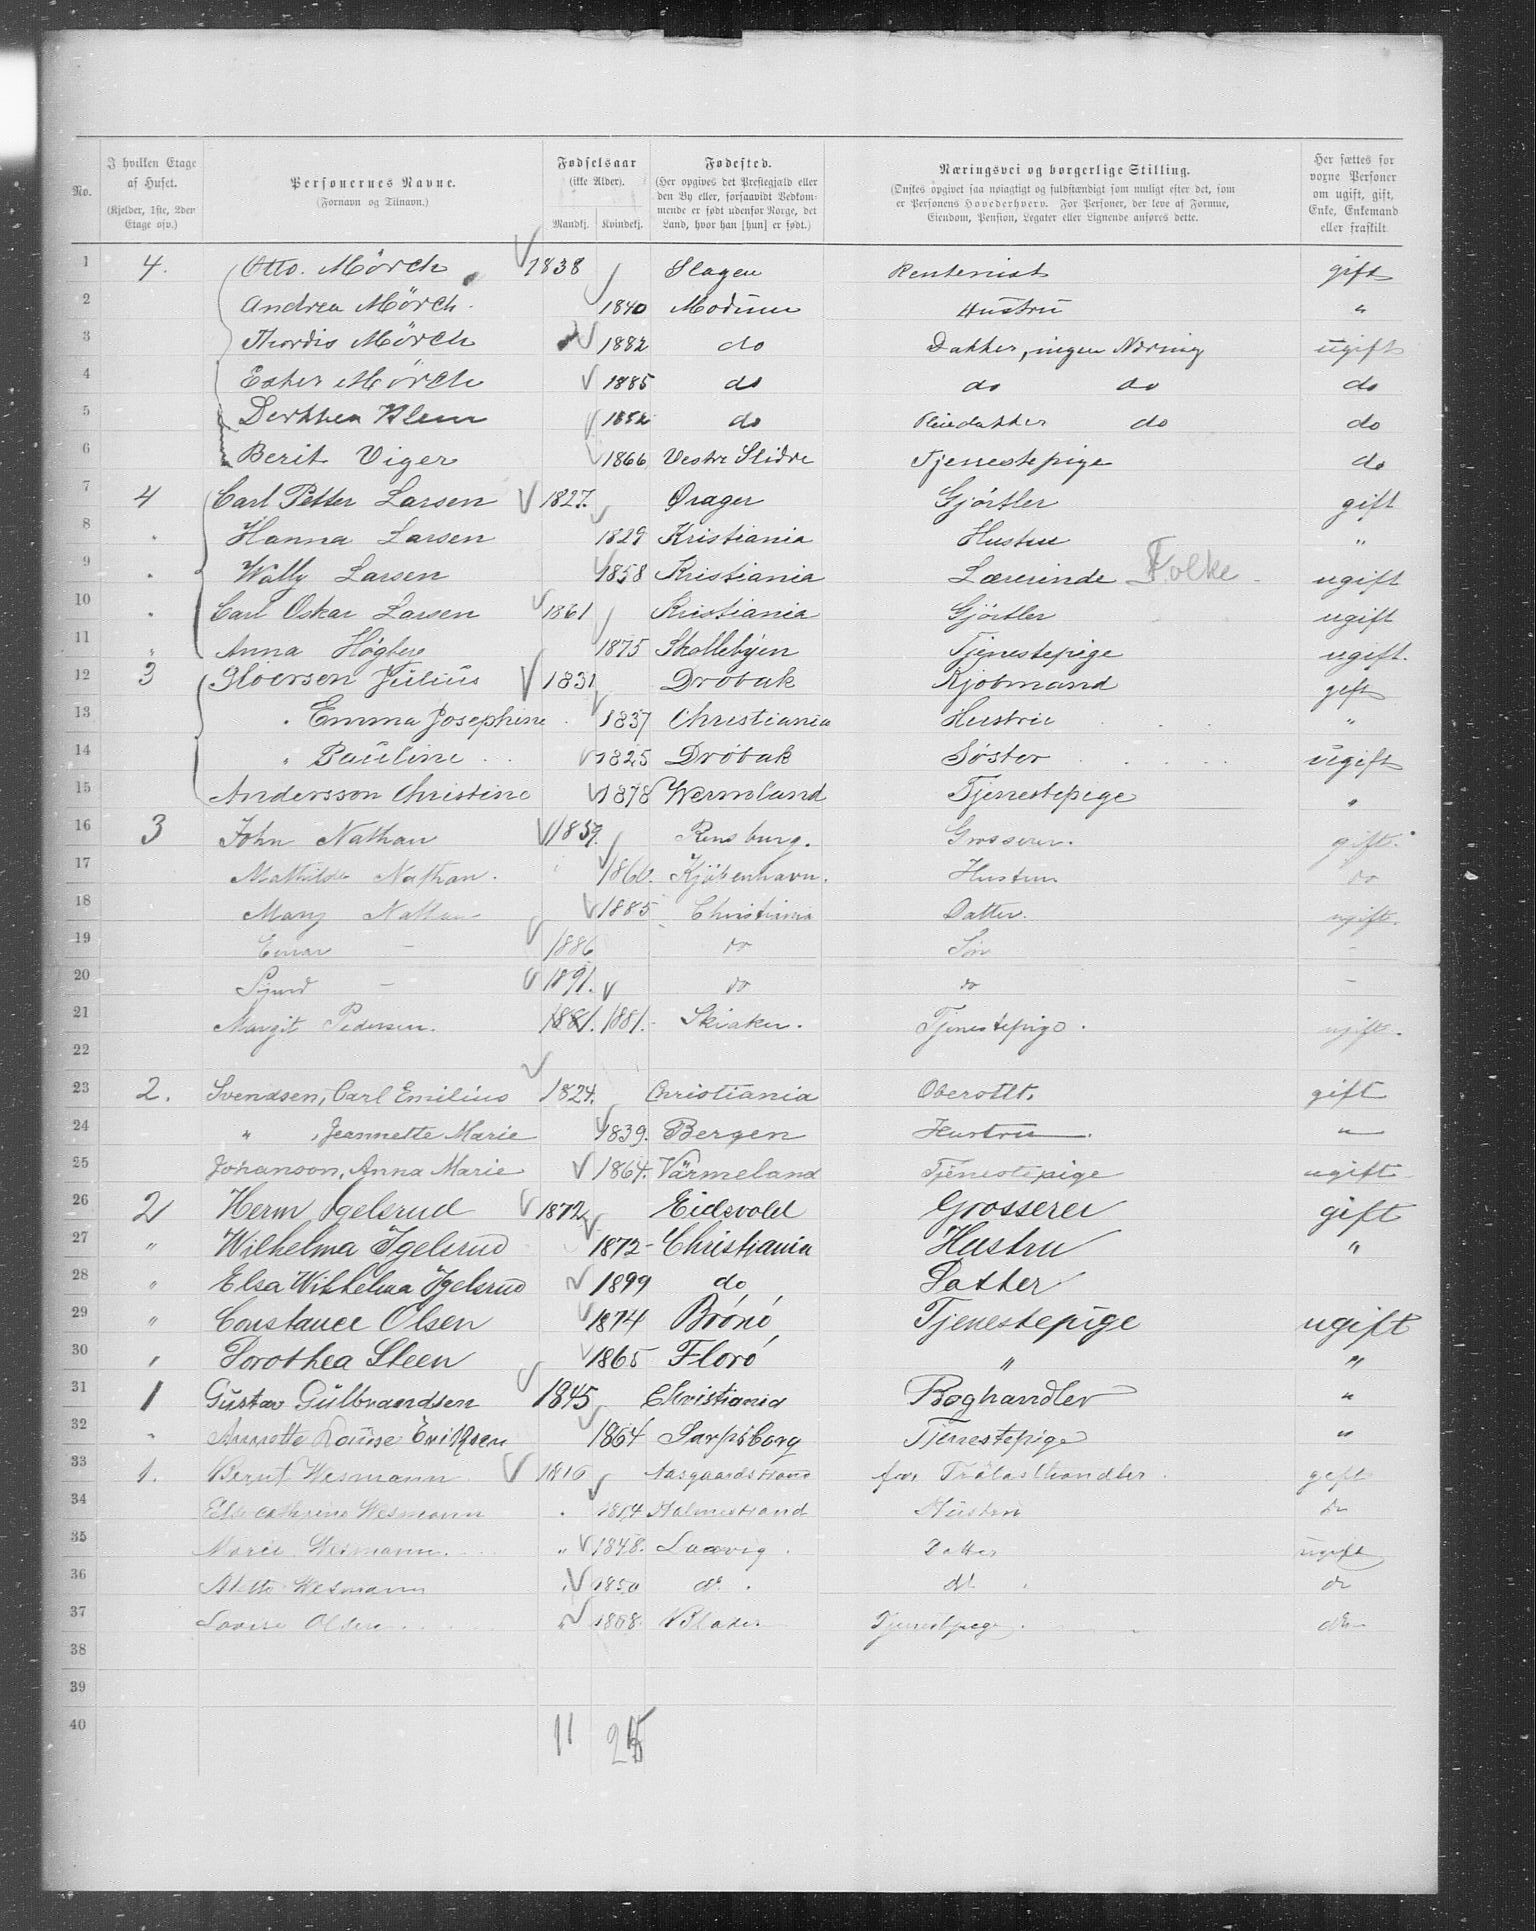 No.
I hvilken Etage af Huset.
(Kjelder, 1ste, 2den Etage osv.)
Personernes Navne.
(Fornavn og Tilnavn.)
Fødselsaar
(ikke Alder).
Mandkj. Kvindekj.
Fødested.
(Her opgives det Prestegjæld eller den By eller, forsaavidt Vedkommende er født udenfor Norge, det Land, hvor han [hun] er født.)
Næringsvei og borgerlige Stilling.
(Ønskes opgivet saa nøiagtigt og fuldstændigt som muligt efter det, som er Personens Hovederhverv. For Personer, der leve af Formue, Eiendom, Pension, Legater eller Lignende anføres dette.
Her sættes for voxne Personer om ugift, gift, Enke, Enkemand eller fraskilt.
1 4. Otto. Mörch 1838 Slagen Rentenist gift
2 Andrea Mörch. 1840 Modum Hustru "
3 Thordis Mörch 1882 do Datter, ingen Næring ugift
4 Ester Mörch 1885 do do do do
5 Dorthea Klem 1882 do Pleiedatter do do
6 Berit Viger 1866 Vestre Slidre Tjenestepige do
7 4 Carl Petter Larsen 1827. Drager Gjörtler gift
8 " Hanna Larsen 1829 Kristiania Hustru "
9 " Wally Larsen 1858 Kristiania Lærerinde Folke ugift
10 " Carl Oskar Larsen 1861 Kristiania Gjörtler ugift
11 " Anna 1875 Skallebyen Tjenestepige ugift.
12 3 Gloersen Julius 1831 Drøbak Kjøbmand gift
13 " Emma Josephine 1837 Christiania Hustru "
14 " Pauline 1825 Drøbak Søster ugift
15 Andersson Christine 1878 Wermland Tjenestepige "
16 3 John Nathan 1857. Rensburg. Grosserer. gift.
17 Mathilde Nathan. 1860. Kjøbenhavn. Hustru do
18 Mary Nathan 1885 Christiania Datter. ugift.
19 Einar - 1886 do Søn -
20 Sigurd - 1891. do do -
21 Margit Pedersen. 1881. 1881. Skiaker. Tjenestepige. ugift.
22
23 2. Svendsen, Carl Emilius 1824. Christiania Oberstlt. gift
24 " , Jeannette Marie 1839. Bergen Hustru. "
25 Johanson, Anna Marie 1864. Värmeland Tjenestepige ugift
26 2 Herm Igelsrud 1872 Eidsvold Grosserer gift
27 " Wilhelma Igelsrud 1872 Christiania Hustru "
28 " Elsa Wilhelma Igelsrud 1899 do Datter
29 " Constance Olsen 1874 Brönö Tjenestepige ugift
30 " Dorothea Steen 1865 Florö " "
31 1 Gustav Gulbrandsen 1845 Christiania Boghandler "
32 " Annette Louise Eriksen 1864 Sarpsborg Tjenestepige "
33 1. Bernt Wesmann 1816 Aasgaardstrand for. Trælasthandler gift
34 Else Cathrine Wesmann " 1814 Holmestrand Hustru do
35 Marie Wesmann. " 1848. Laurvig. Datter ugift
36 Wesmann " 1850 do. do do
37 Lovise Olsen " 1868. Tjenestpige do
38
39
40 11 25